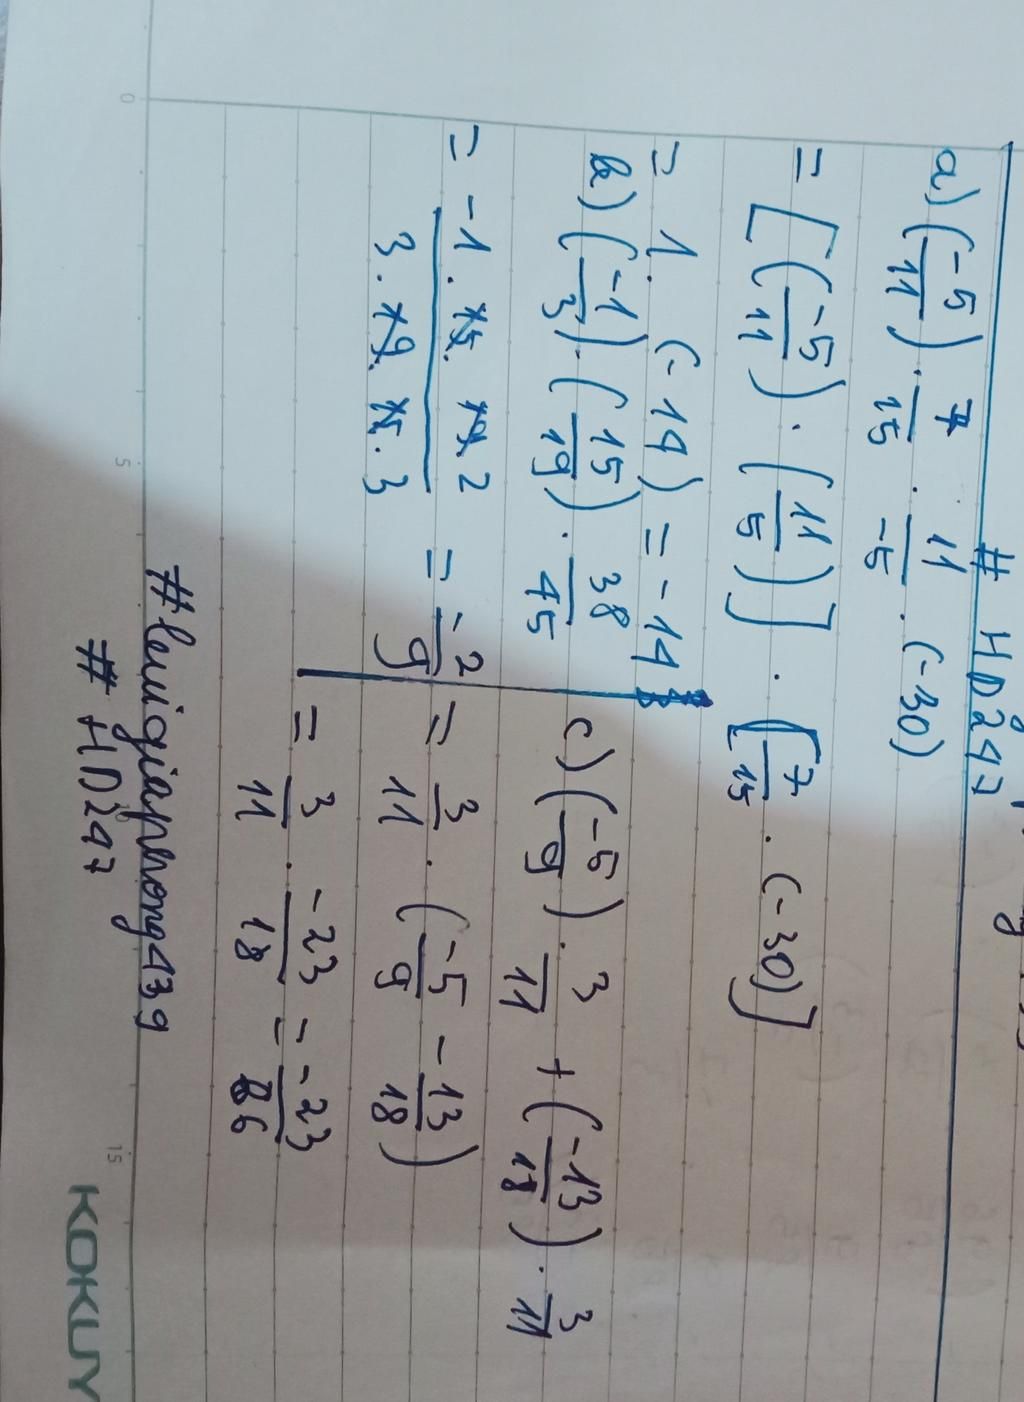 # HD247
a) (-5/11) . 7/15 . 11/-5 . (-30)
= [(-5/11) . (11/5)] . [7/15 . (-30)]
= 1. (-14) = -14
b) (-1/3) . (15/19) . 38/45
= -1 . 15 . 19 . 2 / 3 . 19 . 15 . 3 = -2/9
c) (-5/9) . 3/11 + (-13/18) . 3/11
= 3/11 . (-5/9 - 13/18)
= 3/11 . -23/18 = -23/66
#lenigiaphong439
# HD247
0
5
15
KOKUY